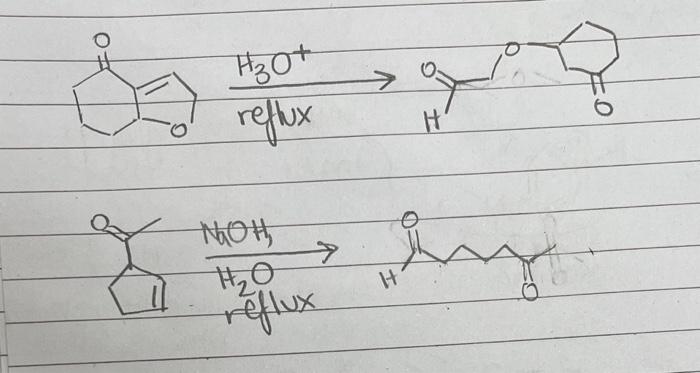 O
H3O+
reflux
O
O
H
O
O
O
NaOH,
H2O
reflux
O
H
O